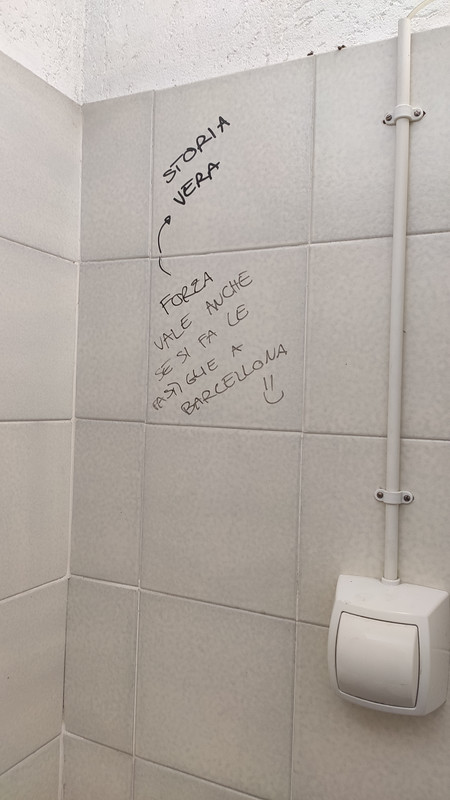 STORIA
VERA
FORZA
VALE ANCHE
SE SI FA LE
PASTIGLIE A
BARCELLONA